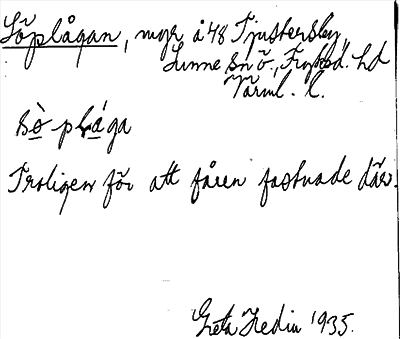 Söplågan, myr å 48 Tjustersby,
Sunne sn ö., Fryksd. hd
Värml. l.
sò plága
Troligen för att fåren fastnade där.
Greta Hedin 1935.